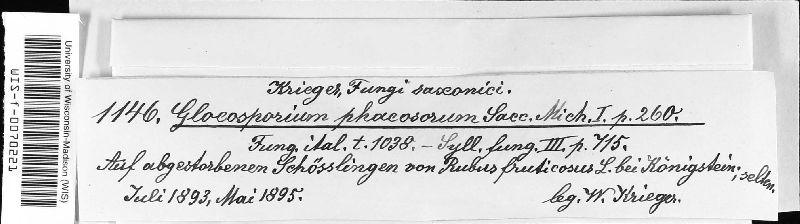 University of Wisconsin-Madison (WIS)
WIS-f-0070221
Krieger, Fungi saxonici.
1146. Gloeosporium phaeosorum Sacc. Mich. I. p. 260.
Fung. ital. t. 1038. - Syll. fung. III. p. 715.
Auf abgestorbenen Schösslingen von Rubus fruticosus L. bei Königstein; selten.
Juli 1893, Mai 1895. leg. W. Krieger.